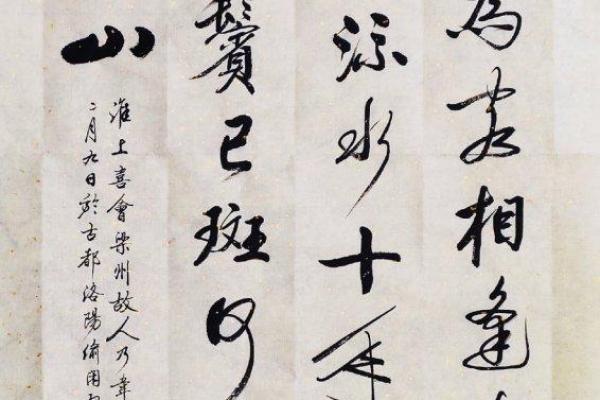 為客相逢
流水十年
鬢已斑何
山
淮上喜會梁州故人乃韋
二月九日於古都洛陽偷閑